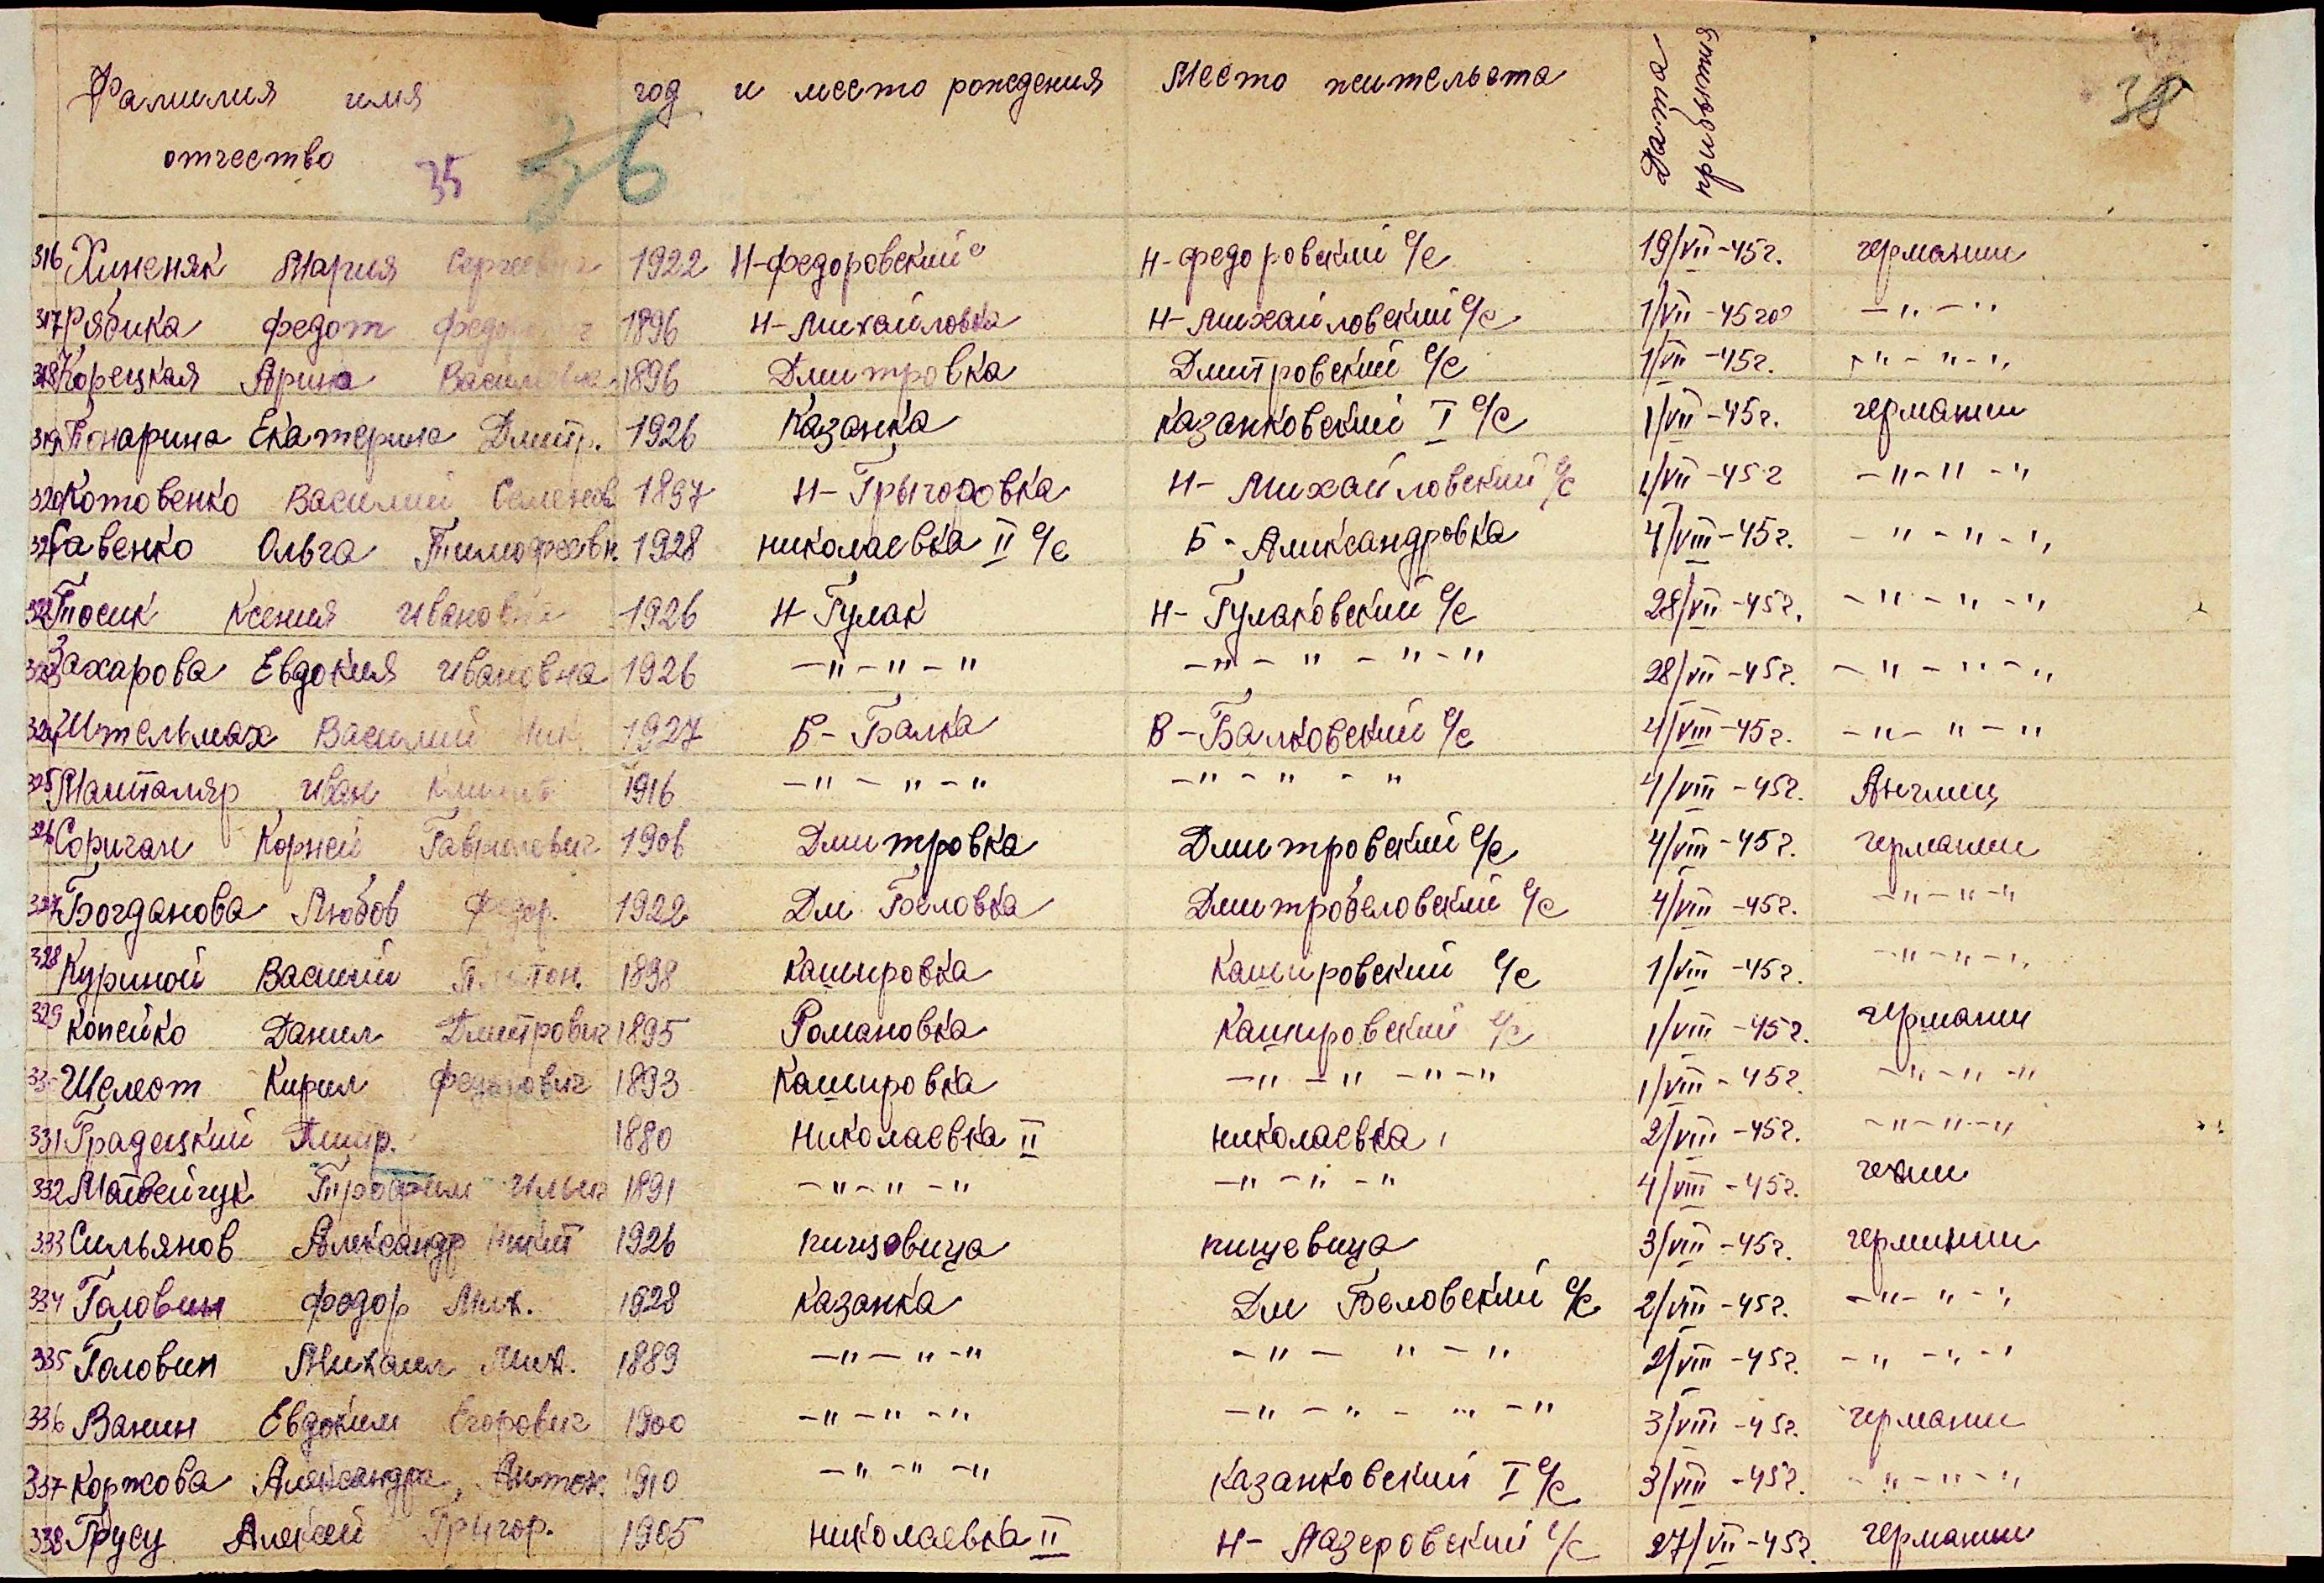 Фамилия имя год и место рождения Место жительста Дата прибытия 38
отчество 35 36
316 Хименяк Мария Сергеевна 1922 Н-Федоровский с Н-Федоровский с/с 19/VII-45г. германии
317 Рябика Федот 1896 Н-Михайловка Н-Михайловский с/с 1/VII-45го? -"-"
318 Корецкая Арина Василевна 1896 Дмитровка Дмитровский с/с 1/VII-45г. -"-"-"
319 Понарина Екатерина Дмитр. 1926 Казанка Казанковский I с/с 1/VII-45г. германии
320 Котовенко Василий Семенов 1897 Н-Грыгоровка Н-Михайловский с/с 1/VII-45г -"-"-"
321 Савенко Ольга Тимофеевн. 1928 николаевка II с/с Б-Александровка 4/VIII-45г. -"-"-"
322 Посик Ксения Ивановна 1926 Н Гулак Н-Гулаковский с/с 28/VII-45г. -"-"-"
323 Захарова Евдокия Ивановна 1926 -"-"-" -"-"-"-" 28/VII-45г. -"-"-"
324 Штельмах Василий Ник. 1927 В-Балка В-Балковский с/с 4/VIII-45г. -"-"-"
325 Машталяр Иван 1916 -"-"-" -"-"-" 4/VIII-45г. Англиц
326 Соричан Корней Гаврилович 1906 Дмитровка Дмитровский с/с 4/VIII-45г. германии
327 Богданова Любов Федор. 1922 Дм Беловка Дмитробеловский с/с 4/VIII-45г. -"-"-"
328 Куриной Василий Платон. 1898 Кашировка Кашировский с/с 1/VIII-45г. -"-"-"
329 Копейко Данил Дмитрович 1895 Романовка Кашировский с/с 1/VIII-45г. германии
330 Шелест Кирил Федорович 1893 Кашировка -"-"-"-" 1/VIII-45г. -"-"-"
331 Градецкий Дмитр. 1880 Николаевка II николаевка 2/VIII-45г. -"-"-"
332 Матвейчук Трофим Ильич 1891 -"-"-" -"-"-" 4/VIII-45г. чехии
333 Сильянов Александр Никит 1926 пищевица пищевица 3/VIII-45г. германии
334 Головин Федор Мих. 1928 Казанка Дм Беловский с/с 2/VIII-45г. -"-"-"
335 Головин Михаил Мих. 1889 -"-"-" -"-"-" 2/VIII-45г. -"-"-"
336 Ванин Евдоким Егорович 1900 -"-"-" -"-"-"-" 3/VIII-45г. германии
337 Коржова Александра Антон. 1910 -"-"-" Казанковский I с/с 3/VIII-45г. -"-"-"
338 Грусу Алексей Грыгор. 1905 николаевка II Н-Лазеровский с/с 27/VII-45г. германии